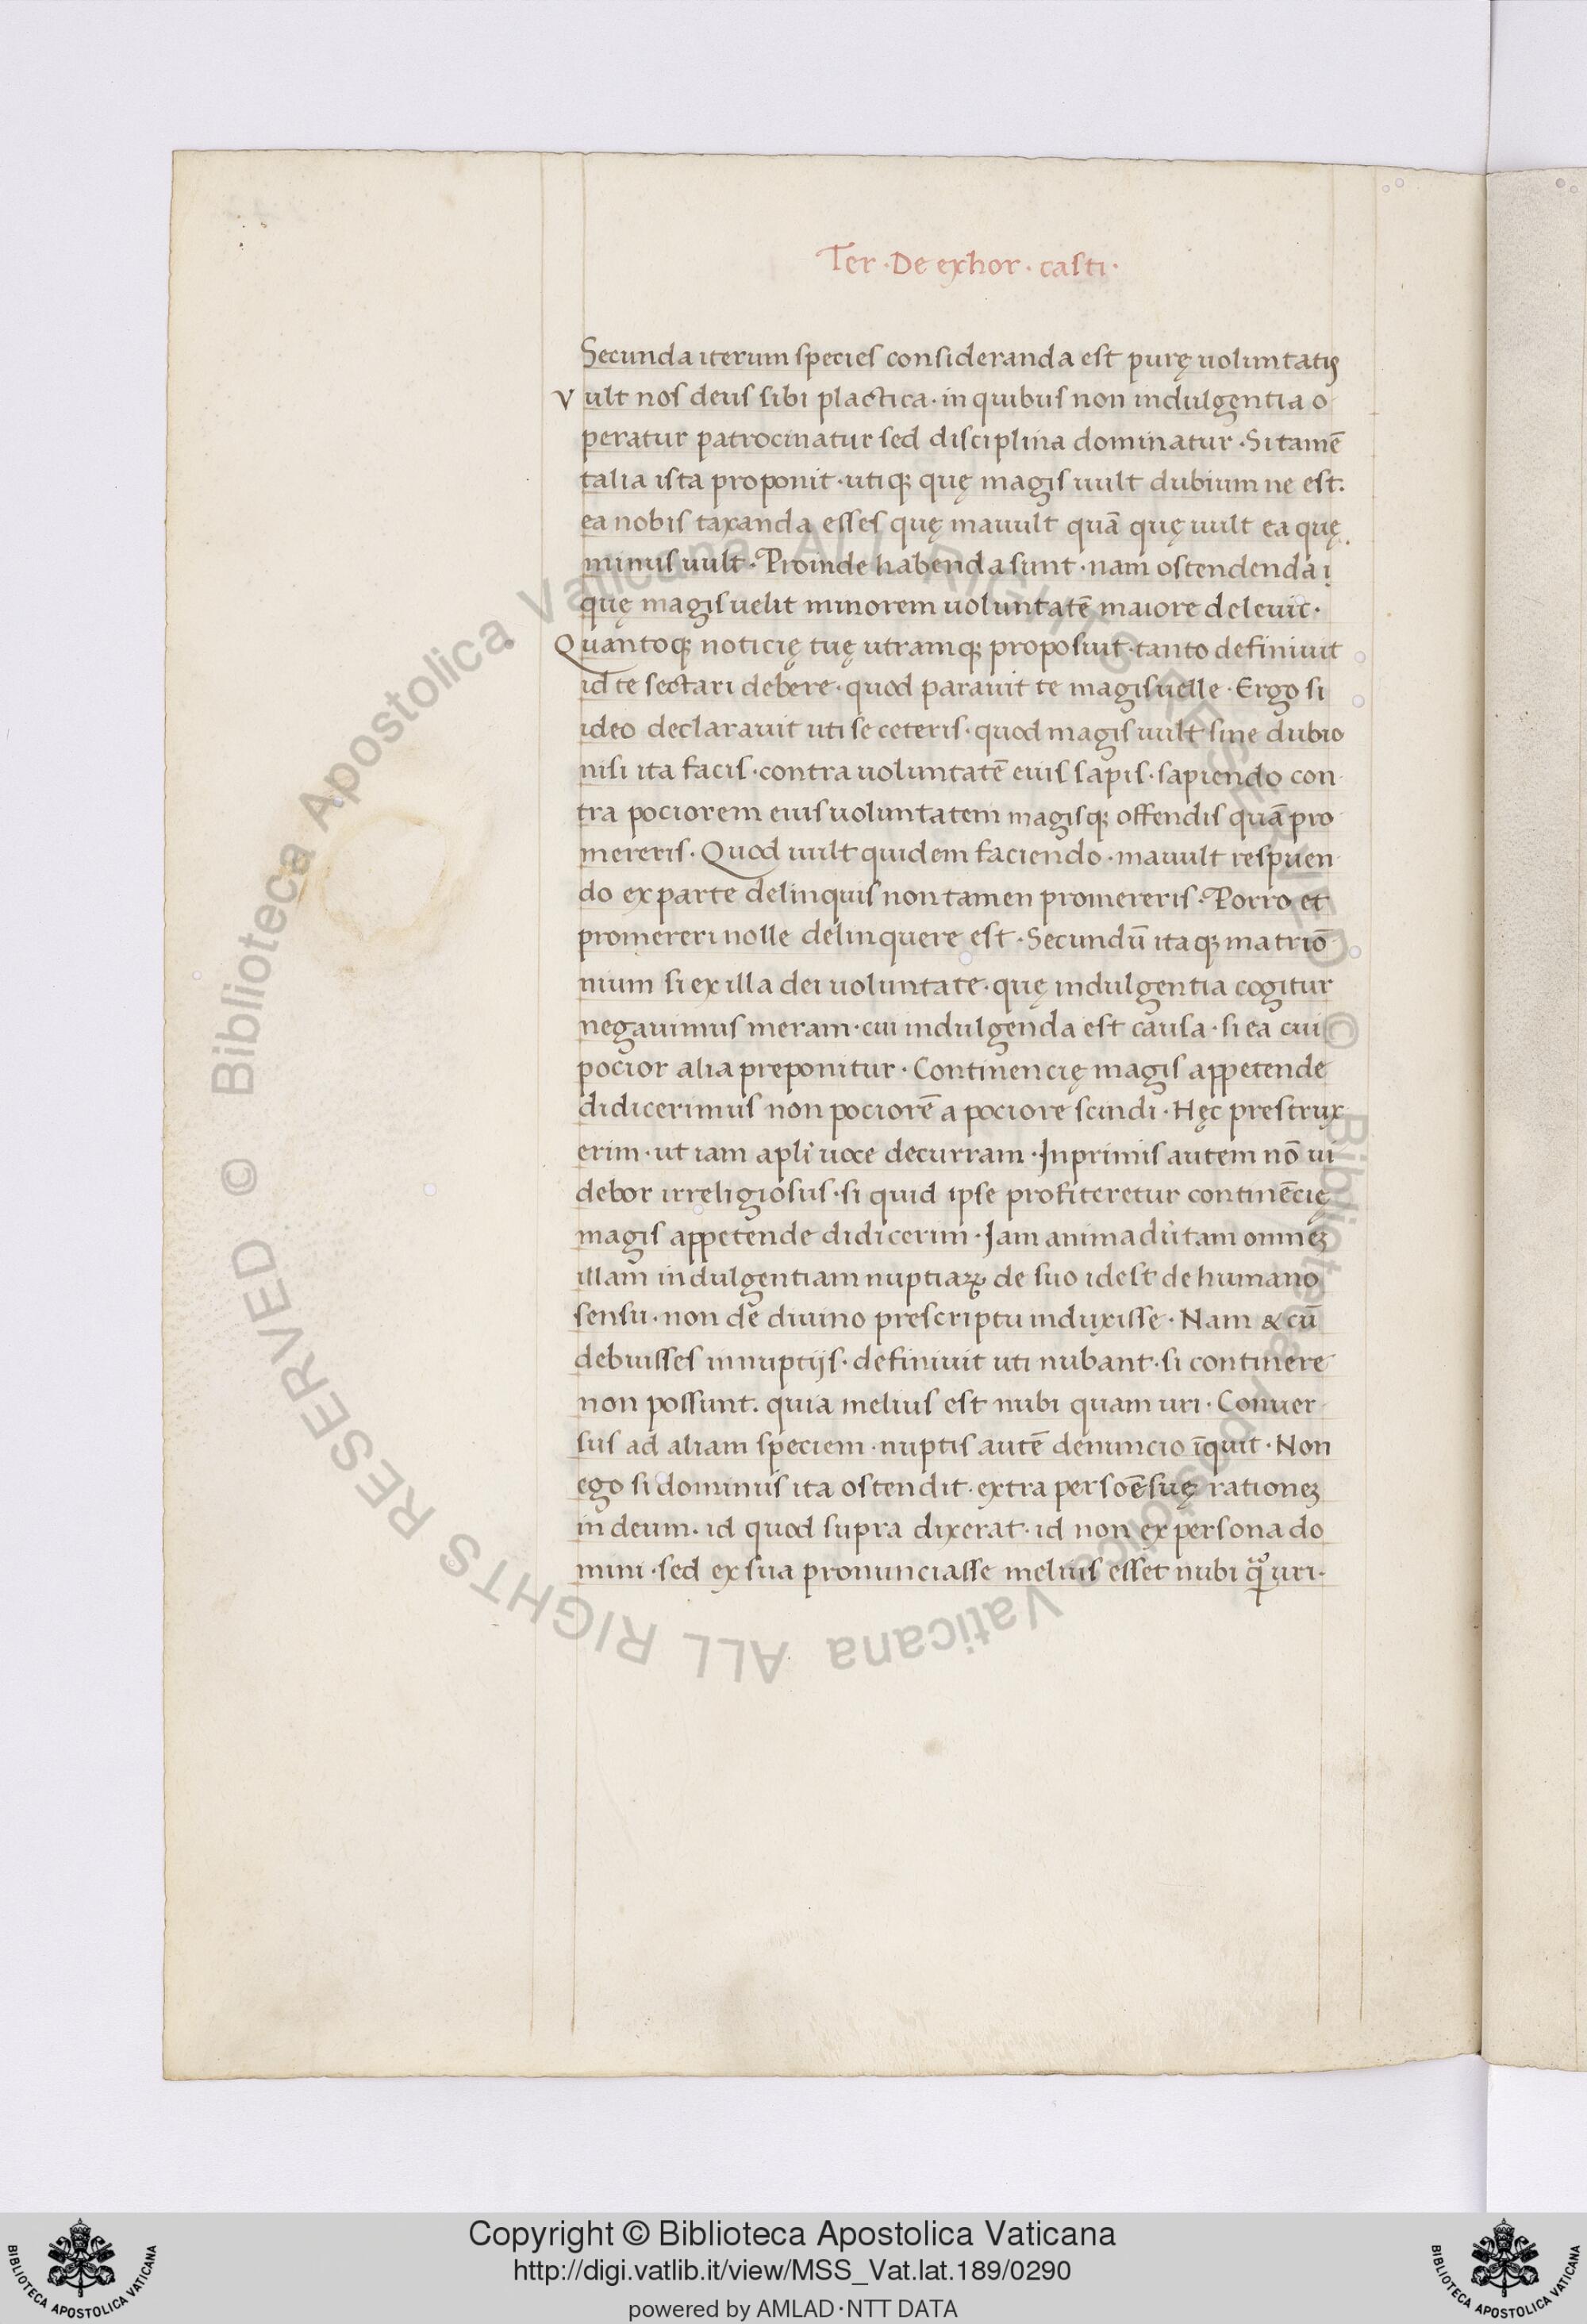 Ter · De exhor · casti ·
Secunda iterum species consideranda est purę uoluntatis
Vult nos deus sibi plactica · in quibus non indulgentia o
peratur patrocinatur sed disciplina dominatur · Si tamē
talia ista proponit · utiq; quę magis uult dubium ne est.
ea nobis taxanda esses quę mauult quā quę uult ea quę
minus uult · Proinde habenda sunt · nam ostendenda i
quę magis uelit minorem uoluntatē maiore deleuit ·
Quantoq; noticię tuę utramq; proposuit · tanto definiuit
id te sectari debere · quod parauit te magis uelle · Ergo si
ideo declarauit uti se ceteris · quod magis uult sine dubio
nisi ita facis · contra uoluntatē eius sapis · sapiendo con
tra pociorem eius uoluntatem magisq; offendis quā pro
mereris · Quod uult quidem faciendo · mauult respuen
do ex parte delinquis non tamen promereris · Porro et
promereri nolle delinquere est · Secundū itaq; matrio̅
nium si ex illa dei uoluntate · quę indulgentia cogitur
negauimus meram · cui indulgenda est causa · si ea cui
pocior alia preponitur · Continencię magis appetende
didicerimus non pociorē a pociore scindi · Hęc prestrux
erim · ut iam apli̅ uoce decurram · Inprimis autem nō ui
debor irreligiosus · si quid ipse profiteretur continēcię
magis appetende didicerim · Iam animadu̅tam omnez
illam indulgentiam nuptiaꝝ de suo id est de humano
sensu · non de diuino prescriptu induxisse · Nam & cū
debuisses innuptijs · definiuit uti nubant · si continere
non possunt. quia melius est nubi quam uri · Conuer
sus ad aliam speciem · nuptis autē denuncio īquit · Non
ego si dominus ita ostendit · extra persoē suę rationez
in deum · id quod supra dixerat · id non ex persona do
mini · sed ex sua pronunciasse melius esset nubi q̃ uri ·
© Biblioteca Apostolica Vaticana ALL RIGHTS RESERVED © Biblioteca Apostolica Vaticana ALL RIGHTS RESERVED
BIBLIOTECA APOSTOLICA VATICANA
Copyright © Biblioteca Apostolica Vaticana
http://digi.vatlib.it/view/MSS_Vat.lat.189/0290
powered by AMLAD·NTT DATA
BIBLIOTECA APOSTOLICA VATICANA